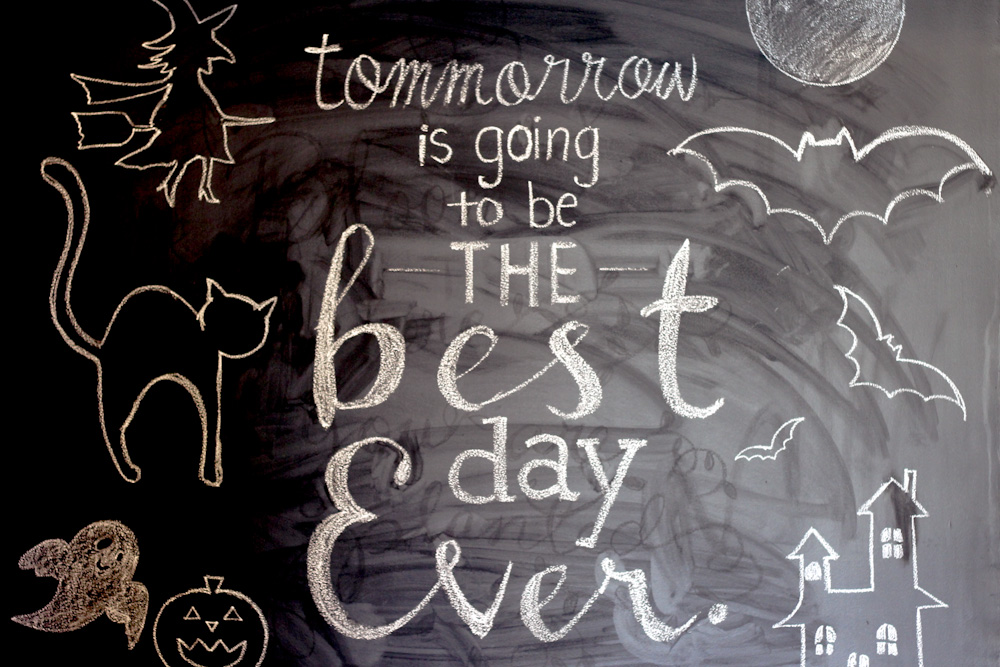 tommorrow
is going
to be
THE
best
day
Ever.